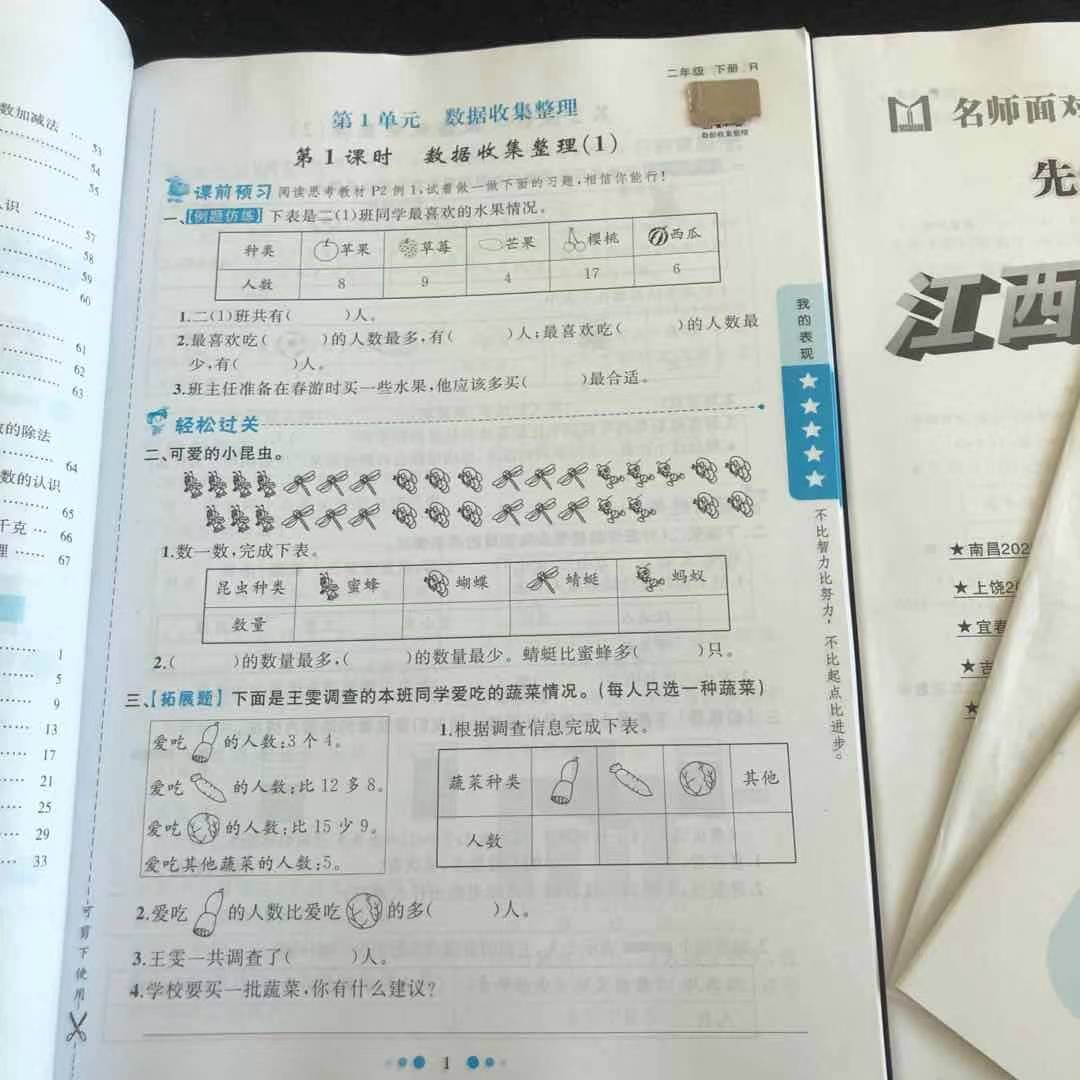 二年级 下册 R
第1单元 数据收集整理
数据收集整理
第1课时 数据收集整理(1)
课前预习 阅读思考教材P2例1,试着做一做下面的习题,相信你能行!
一、【例题仿练】下表是二(1)班同学最喜欢的水果情况。
种类 苹果 草莓 芒果 樱桃 西瓜
人数 8 9 4 17 6
1.二(1)班共有( )人。
2.最喜欢吃( )的人数最多,有( )人;最喜欢吃( )的人数最
少,有( )人。
3.班主任准备在春游时买一些水果,他应该多买( )最合适。
轻松过关
二、可爱的小昆虫。
1.数一数,完成下表。
昆虫种类 蜜蜂 蝴蝶 蜻蜓 蚂蚁
数量
2.( )的数量最多,( )的数量最少。蜻蜓比蜜蜂多( )只。
三、【拓展题】下面是王雯调查的本班同学爱吃的蔬菜情况。(每人只选一种蔬菜)
爱吃 的人数:3个4。
爱吃 的人数:比12多8。
爱吃 的人数:比15少9。
爱吃其他蔬菜的人数:5。
1.根据调查信息完成下表。
蔬菜种类 其他
人数
2.爱吃 的人数比爱吃 的多( )人。
3.王雯一共调查了( )人。
4.学校要买一批蔬菜,你有什么建议?
1
我的表现
不比智力比努力,不比起点比进步。
可剪下使用
数加减法 …
53
54
55
认识
57
58
59
60
61
62
63
数的除法
64
数的认识
65
千克 … 66
理 …… 67
1
5
9
13
17
21
25
29
33
名师面对
先
江西
★南昌202
★上饶2
★宜春
★吉
★